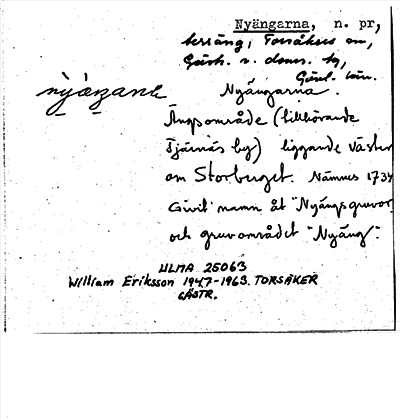 Nyängarna, n. pr,
terräng, Torsåkers sn,
Gästr. ö. doms. hg,
Gävl. län.
Nyängarna.
Ängsområde (tillhörande
Tjärnäs by) liggande väster
om Storberget. Nämnes 1734
Givit namn åt "Nyängsgruvor
och gruvområdet "Nyäng".
ULMA 25063
William Eriksson 1947-1963. TORSÅKER
GÄSTR.